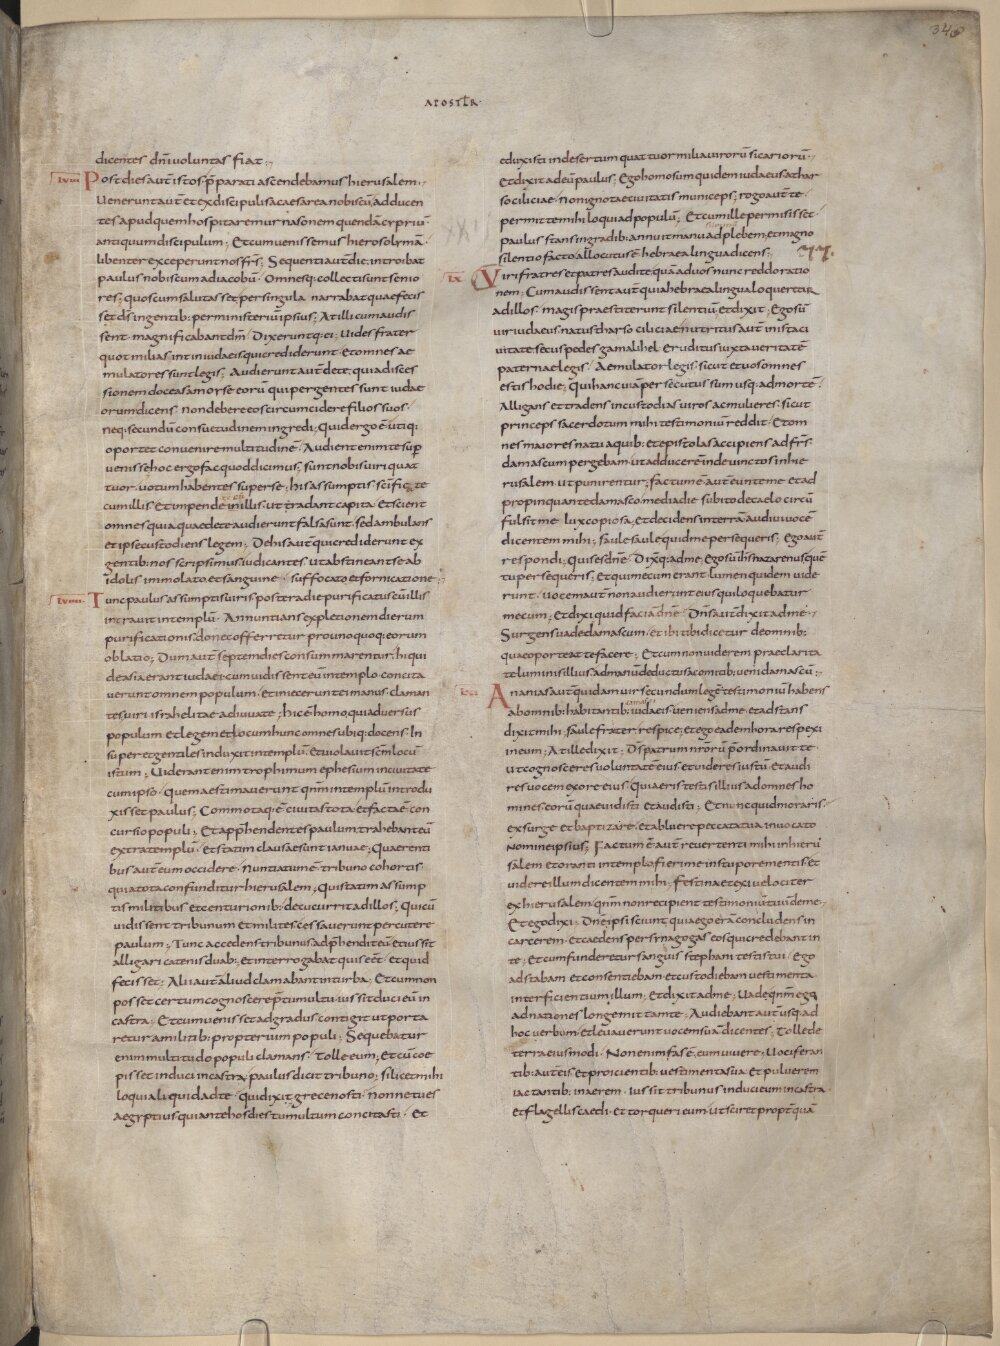 348
APOSTLR·
dicentes dn̄i voluntas fiat·,
LVIII Post dies aut̄ istos p̄parati ascendebamus hierusalem·,
Venerunt aut̄ et ex discipulis a caesarea nobiscū, adducen
tes apud quem hospitaremur nasonem quendā cypriū
antiquum discipulum; Et cum uenissemus hierosolymā
libenter exceperunt nos frs̄; Sequenti aut̄ die, introibat
paulus nobiscum ad iacobū· Omnesq; collecti sunt senio
res; quos cum salutasset, per singula narrabat quae fecis
set d̄s in gentib; per ministeriū ipsius; At illi cum audis
sent magnificabant dm̄; Dixeruntq; ei; Uides frater
quot milia sint in iudaeis qui crediderunt· et omnes ae
mulatores sunt legis; Audierunt aut̄ de te, quia disces
sionem doceas a morse eorū qui per gentes sunt iudae
orum dicens non debere eos circumcidere filios suos·
neq; secundū consuetudinem ingredi; Quid ergo ē utiq;
oportet conuenire multitudinē· Audient enim te sup̄
uenisse; hoc ergo fac quod dicimus; sunt nobis uiri quat
tuor· uotum habentes super se; his assumptis sc̄ifica te
cum illis· et impende in illis· ut tradant capita· Et scient
omnes quia quae de te audierunt falsa sunt· sed ambulas
et ipse custodiens legem; De his aut̄ qui crediderunt ex
gentib; nos scripsimus iudicantes ut abstineant se ab
idolis immolato et sanguine· suffocato et fornicatione·,
LVIIII Tunc paulus assumptis uiris postera die purificatus cū illis
intrauit in templū· Annuntians expletionem dierum
purificationis· donec offerretur pro unoquoq; eorum
oblatio; Dum aut̄ septem dies consummarentur, hi qui
de asia erant iudaei cum uidissent eū in templo concita
uerunt omnem populum· et iniecerunt ei manus· claman
tes, uiri israhelitae adiuuate; hic ē homo, qui aduersus
populum et legem et locum hunc omnes ubiq; docens· In
super et gentiles induxit in templū· et uiolauit sc̄m locū
istum; Uiderant enim trophimum ephesium in ciuitate
cum ipso· Quem aestimauerunt qnm̄ in templū introdu
xisset paulus; Commotaq; ē ciuitas tota· et facta ē con
cursio populi; Et app̄hendentes paulum, trahebant eū
extra templū· et statim clausae sunt ianuae; Quaerenti
bus aut̄ eum occidere nuntiatum ē tribuno cohortis
quia tota confunditur hierusalem; Qui statim assump
tis militibus et centurionib; decucurrit ad illos; Qui cū
uidissent tribunum et milites, cessauerunt percutere
paulum; Tunc accedens tribunus, adp̄hendit eū et iussit
alligari catenis duab; et interrogabat quis eēt et quid
fecisset; Alii aut̄ aliud clamabant in turba· Et cum non
posset certum cognoscere p̄ tumultu, iussit duci eū in
castra; Et cum uenisset ad gradus contigit ut porta
retur a militib; propter uim populi; Sequebatur
enim multitudo populi clamans· Tolle eum; Et cū coe
pisset induci in castra, paulus dicit tribuno; si licet mihi
loqui aliquid ad te· qui dixit grece nosti· non ne tu es
aegyptius qui ante hos dies tumultum concitasti· Et
eduxisti in desertum quattuor milia uirorū sicariorū·,
Et dixit ad eū paulus; Ego homo sum quidem iudaeus a thar
so ciliciae· non ignotae ciuitatis municeps; rogo aut̄ te·
permitte mihi loqui ad populū; Et cum ille permisisset·
paulus stans in gradib; annuit manu ad plebem; et magno
silentio facto allocutus ē hebraea lingua dicens·,
LX Viri fratres et patres audite quā ad uos nunc reddo ratio
nem; Cum audissent aut̄ quia hebraea lingua loqueretur
ad illos· magis praestiterunt silentiū, et dixit; Ego sū
uir iudaeus natus tharso ciliciae nutritus aut̄ in ista ci
uitate, secus pedes gamalihel· Eruditus iuxta ueritatē
paternae legis; Aemulator legis· sicut et uos omnes
estis hodie; qui hanc uiā persecutus sum usq; ad mortē·
Alligans et tradens in custodias uiros ac mulieres· sicut
princeps sacerdotum mihi testimoniū reddit· Et om
nes maiores natu, a quib; et epistolas accipiens ad frs̄·
damascum pergebam· ut adducerē inde uinctos in hie
rusalem· ut punirentur; factum ē aut̄ eunte me· et ad
propinquante damasco media die subito de caelo circū
fulsit me lux copiosa· Et decidens in terrā audiui uocē
dicentem mihi; Saule saule quid me persequeris; Ego aut̄
respondi; Quis es dn̄e· Dixitq; ad me; Ego sū ih̄s nazarenus quē
tu persequeris; Et qui mecum erant lumen quidem uide
runt· uocem aut̄ non audierunt eius qui loquebatur
mecum; Et dixi quid faciā dn̄e· Dn̄s aut̄ dixit ad me·,
Surgens uade damascum· et ibi tibi dicetur de omnib;
quae oporteat te facere; Et cum non uiderem prae clarita
te luminis illius, ad manū deductus a comitib; ueni damascū·,
LXI Ananias aut̄ quidam uir secundum legē testimoniū habens
ab omnib; habitantib; iudaeis ueniens ad me· et adstans
dixit mihi; saule frater, respice; et ego eadem hora respexi
in eum; At ille dixit; D̄s patrum nrorū p̄ordinauit te·
ut cognosceres uoluntatē eius· et uideres iustū· et audi
res uocem ex ore eius· Quia eris testis illius ad omnes ho
mines· eorū quae uidisti et audisti; Et nunc quid moraris·
exsurge et baptizare· et ablue peccata tua inuocato
nomine ipsius; Factum ē aut̄ reuertenti mihi in hieru
salem· et oranti in templo fieri me in stupore mentis· et
uidere illum dicentem mihi; Festina et exi uelociter
ex hierusalem· qnm̄ non recipient testimoniū tuū de me·,
Et ego dixi; Dn̄e ipsi sciunt quia ego erā concludens in
carcerem· et caedens per synagogas eos qui credebant in
te; Et cum funderetur sanguis stephani testis tui· Ego
adstabam et consentiebam· et custodiebam uestimenta
interficientium illum; Et dixit ad me; Uade qnm̄ ego
ad nationes longe mittam te· Audiebant aut̄ usq; ad
hoc uerbum· et leuauerunt uocem suā dicentes; Tolle de
terra eiusmodi· Non enim fas ē eum uiuere; Uociferan
tib; aut̄ eis et proicientib; uestimenta sua· et puluerem
iactantib; in aerem· iussit tribunus induci eum in castra·
et flagellis caedi· et torqueri eum ut sciret propt̄ quā